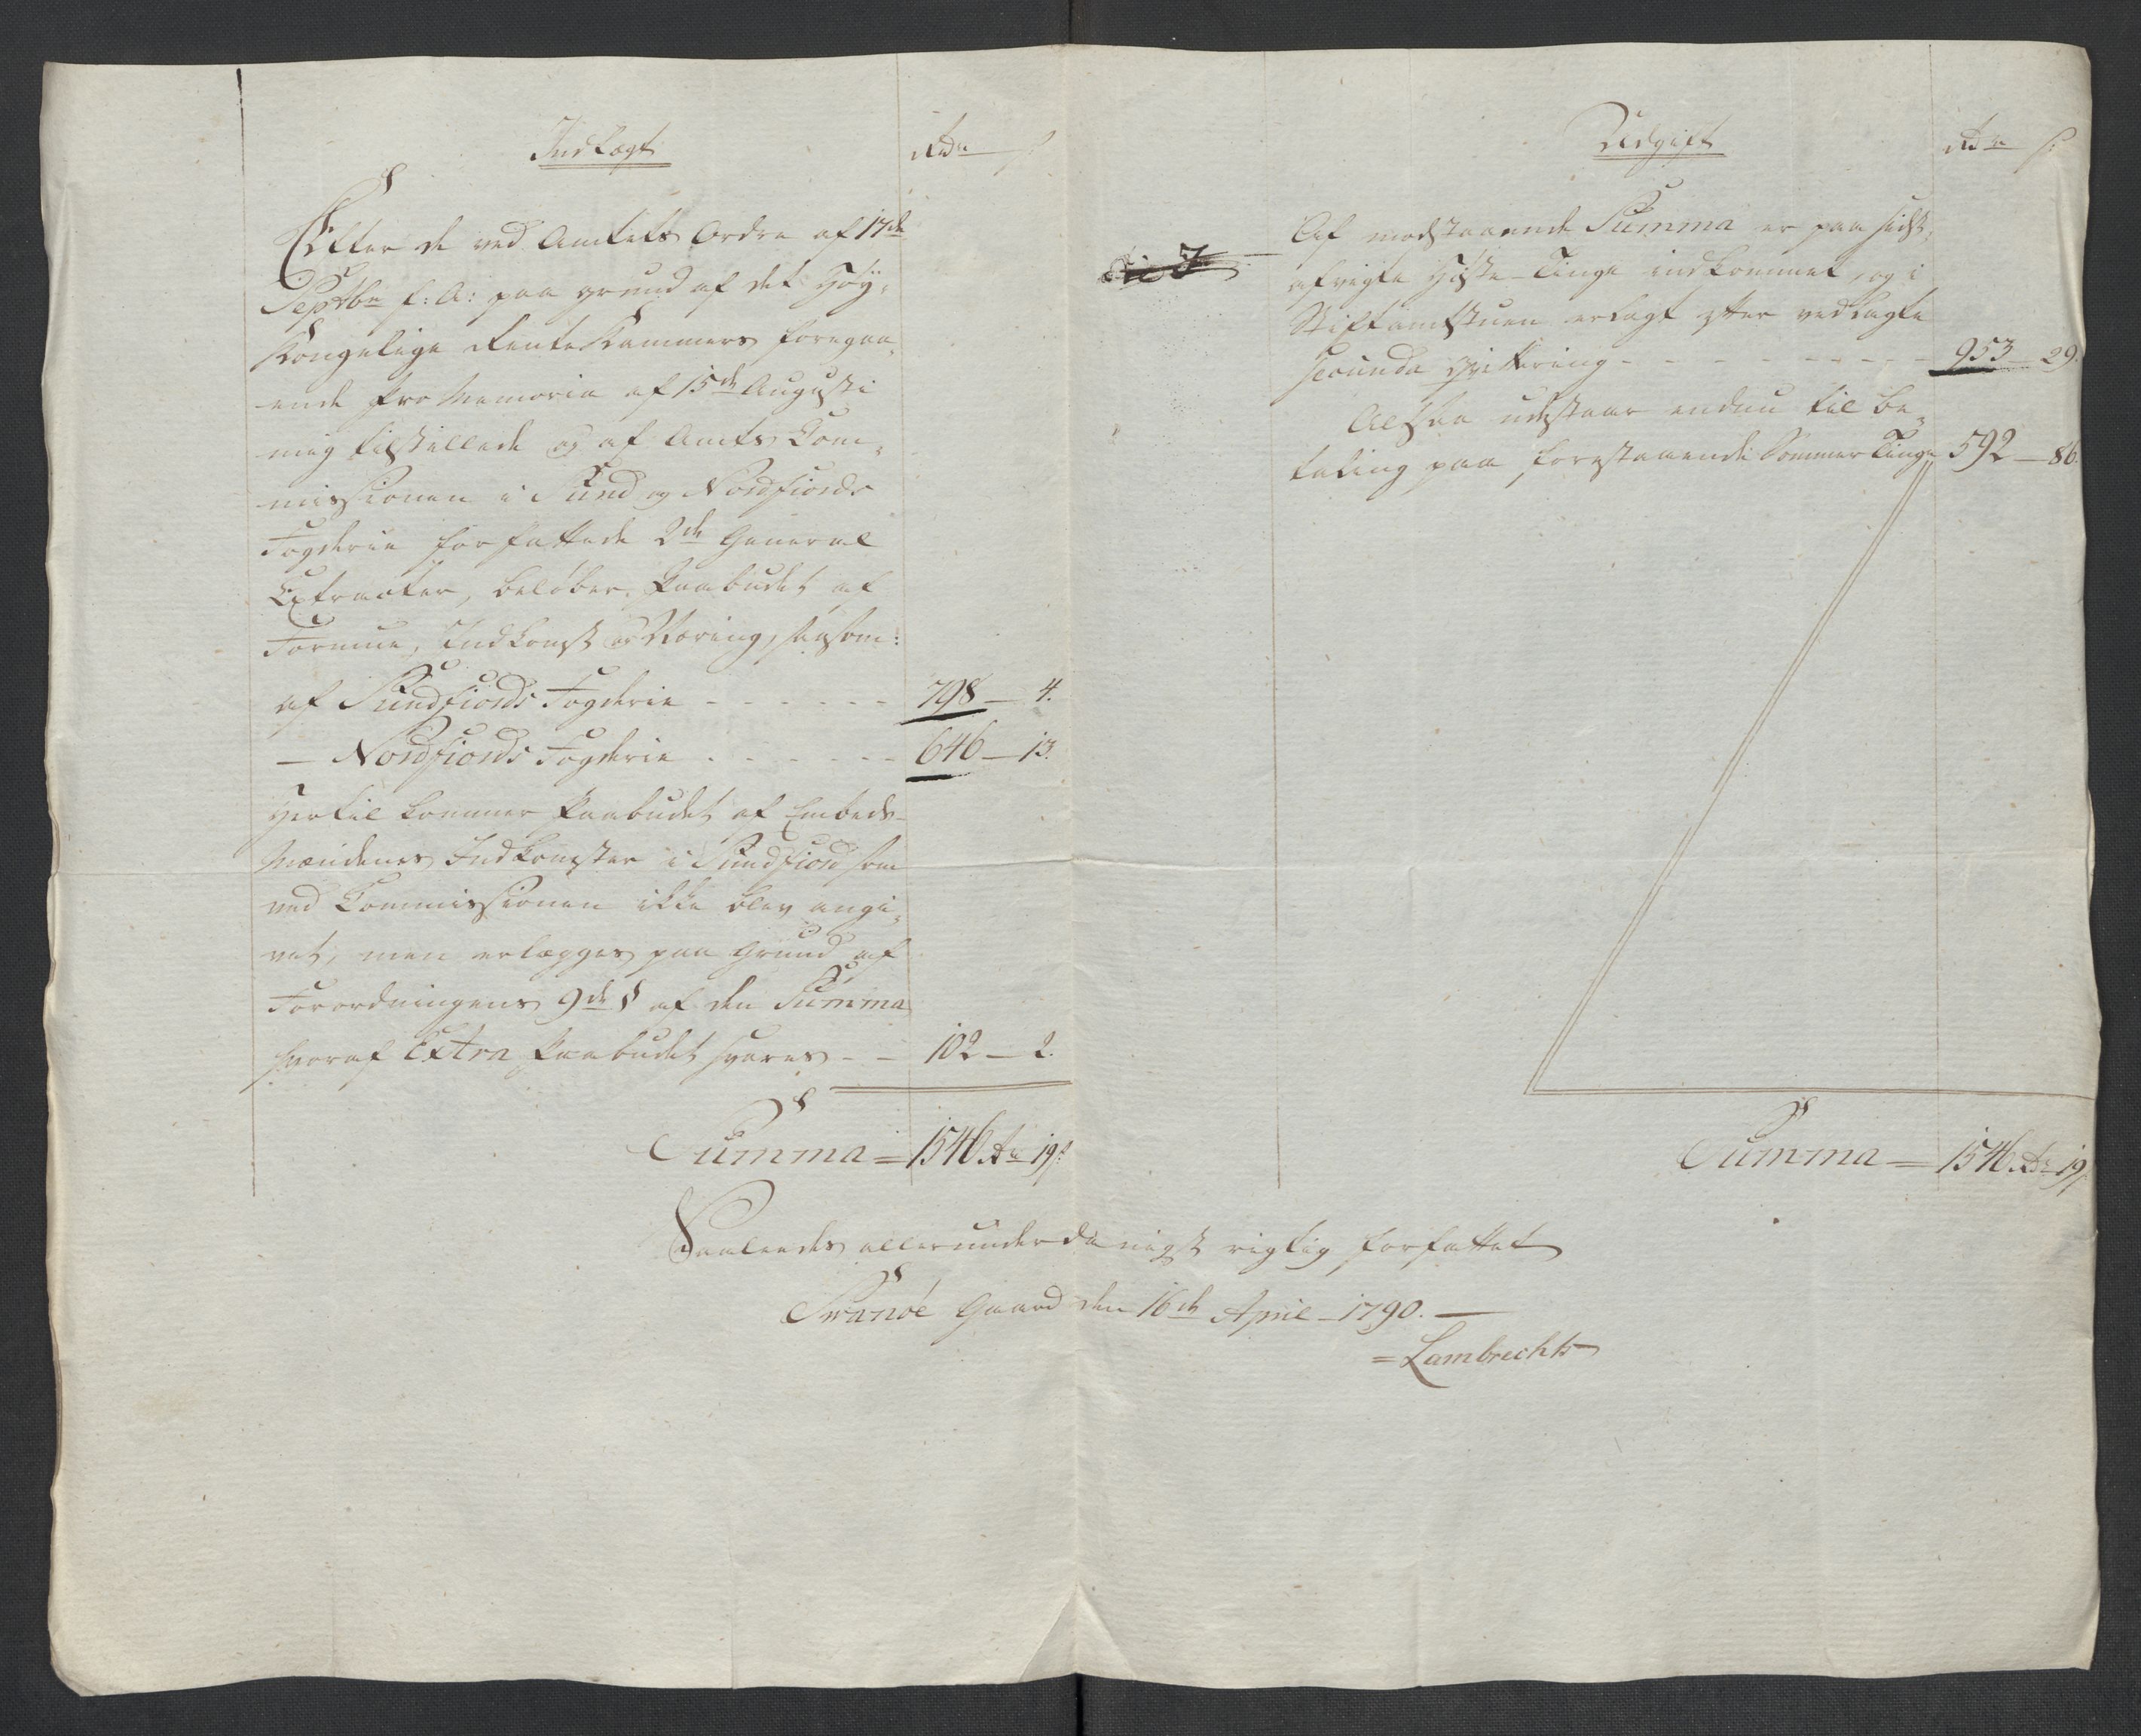 Indtægt
Rdr s:
Efter de ved Amtets Ordre af 17de
Septbr f: A: paa grund af det Høy-
Kongelige Rente Kammers foregaa-
ende Pro Memoria af 15de Augusti
mig tilstillede og af Amts Com-
missionen i Sund og Nordfiords
Fogderie forfattede 2de General
Extracter, beløber Paabudet af
Formue, Indkomst og Næring, saasom:
af Sundfiords Fogderie - - - - - - 798 - 4.
- Nordfiords Fogderie - - - - - - 646 - 13.
Hertil kommer Paabudet af Embeds-
Mændenes Indkomster i Sundfiord som
ved Commissionen ikke blev angi-
vet, men erlægges paa Grund af
Forordningens 9de § af den Summa
hvoraf Extra Paabudet svares - - 102 - 2.
Summa = 1546 Rdr 19 s:
Udgift
Rdr s:
Af modstaaende Summa er paa sidst
afvigte Høste-Tinge indkommet, og i
Stiftamtstuen erlagt efter vedlagte
Secunda qvittering - - - - - - - - 953 - 29.
Altsaa udestaar endnu til be-
taling paa forestaaende Sommer Tinge 592 - 86.
Summa = 1546 Rdr 19
Saaledes allerunderdanigst rigtig forfattet
Svanøe Gaard den 16de April - 1790. -
= Lambrechts